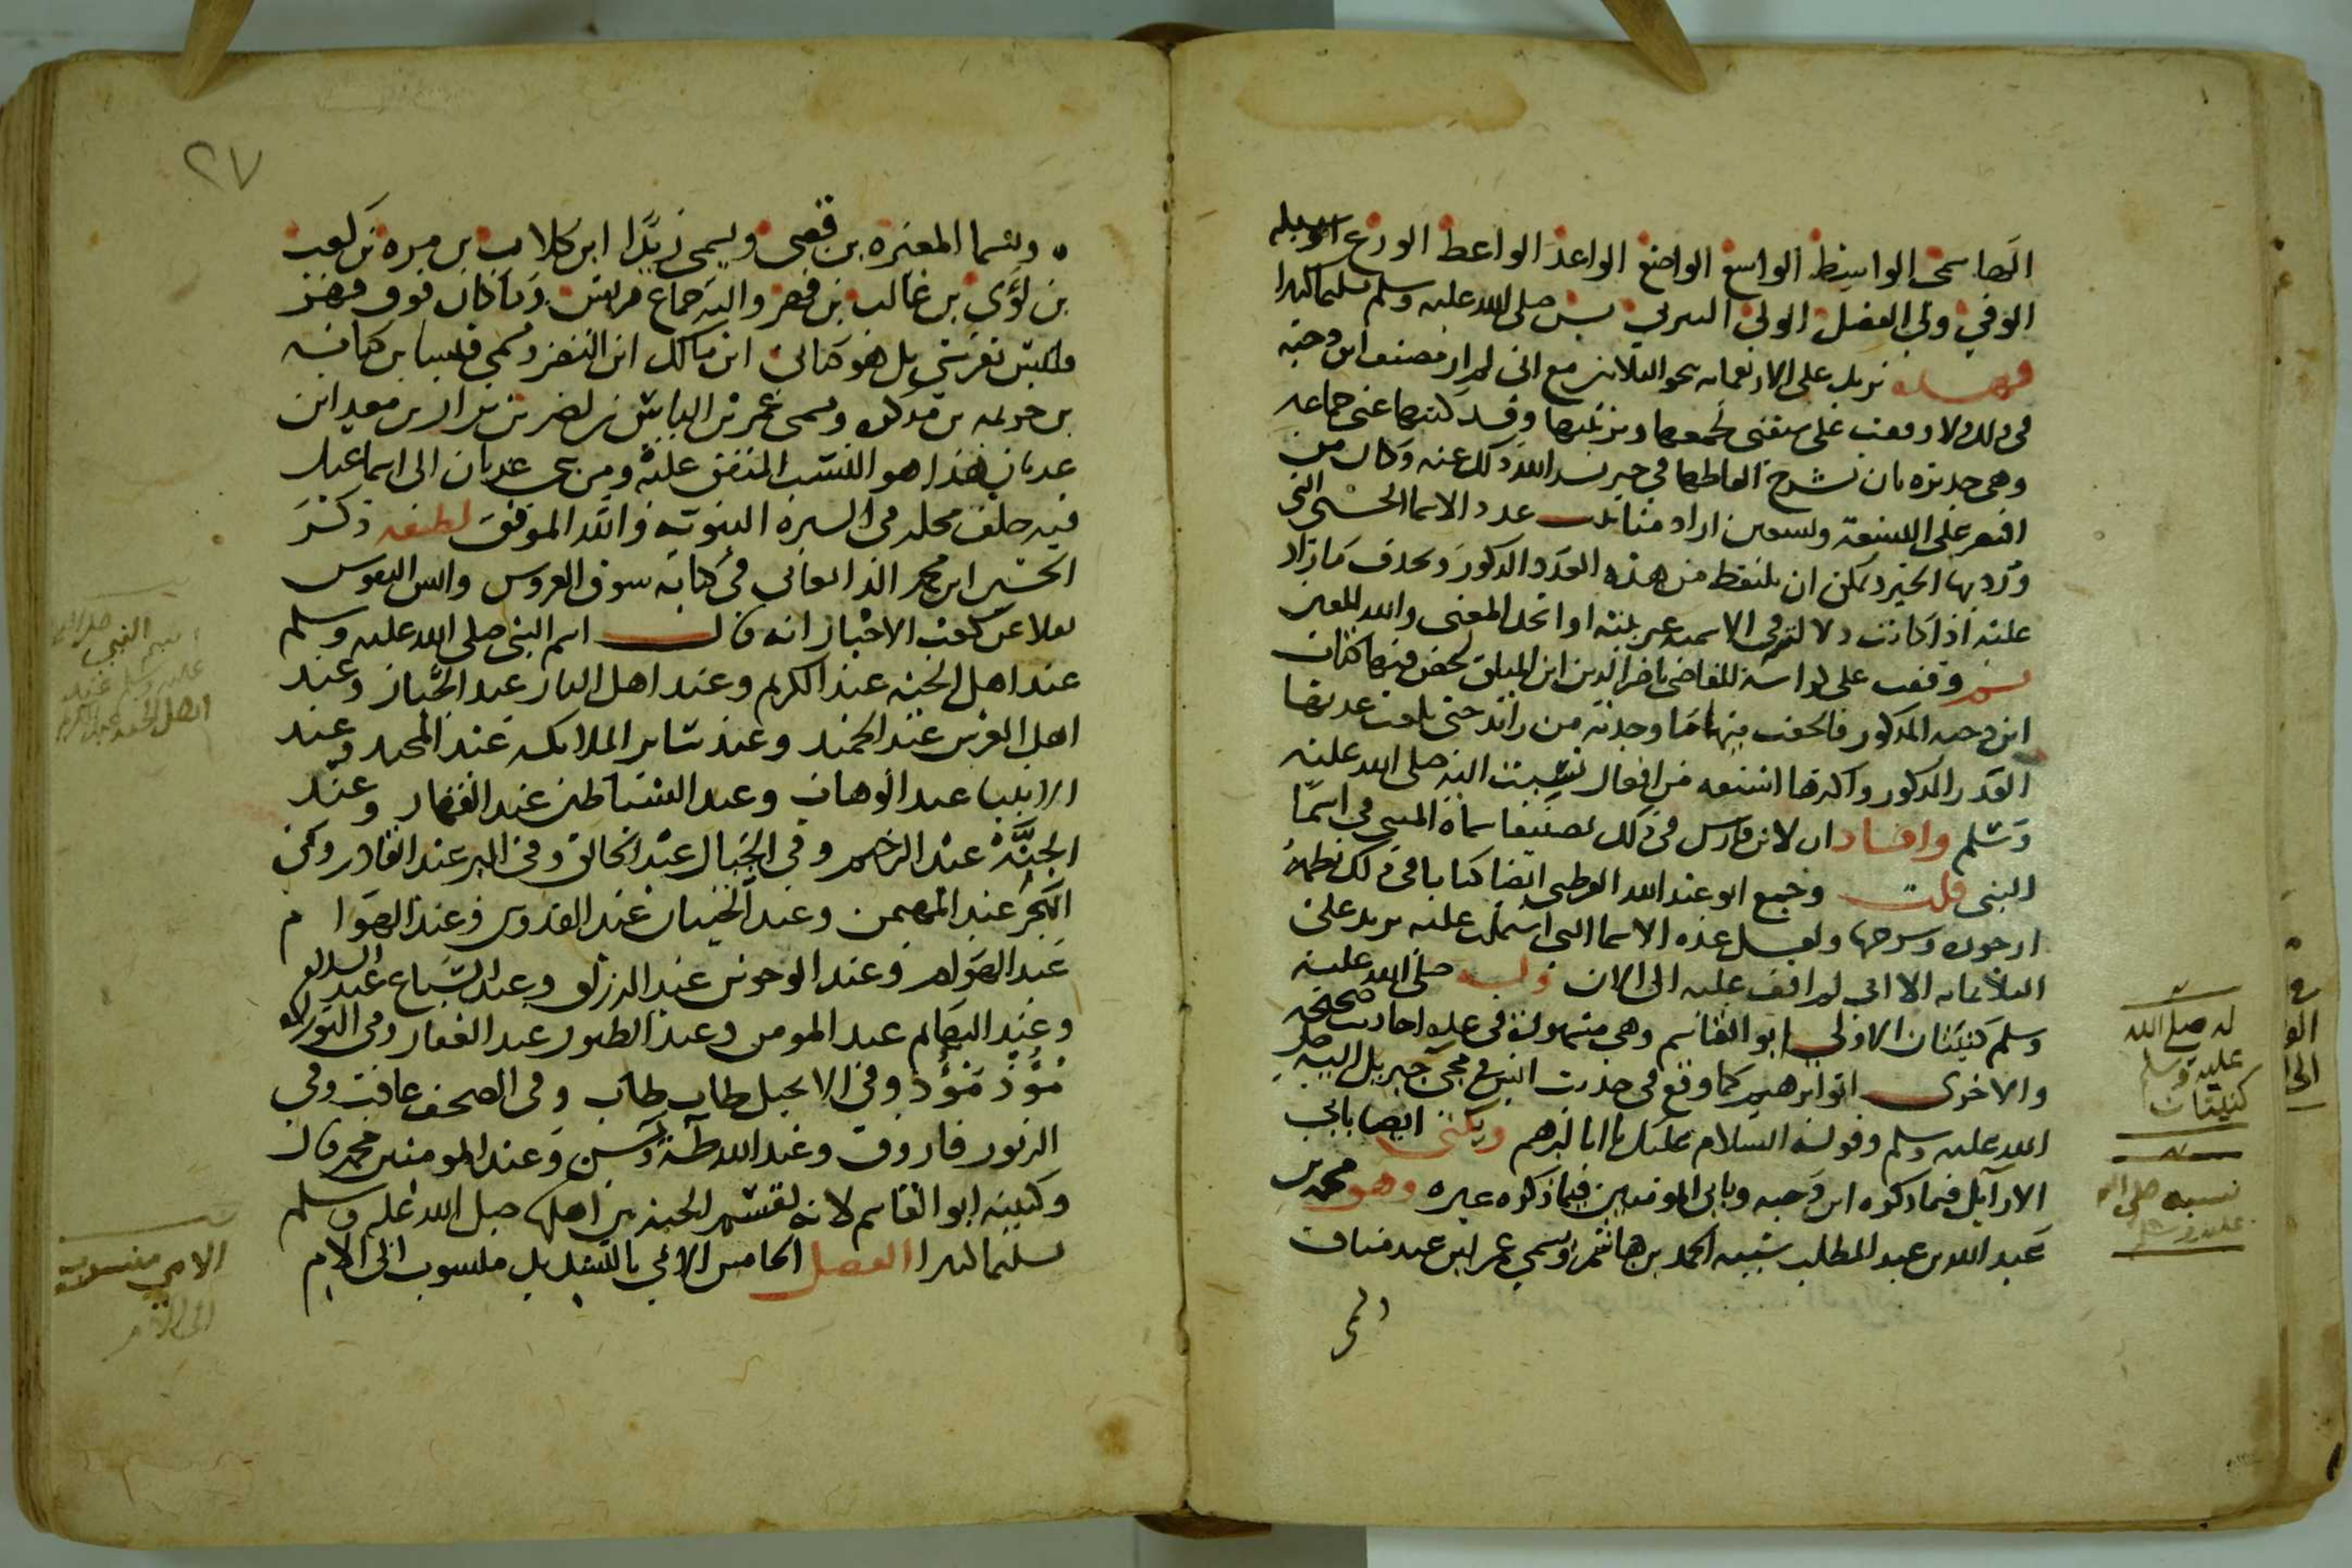 الهاشمي الواسط الواسع الواضع الواعد الواعظ الورع الوسيلة
الوفي ولي الفضل الولي اليثربي يس صلى الله عليه وسلم تسليما كثيرا
فهذه تزيد على الأربعمائة نحو الثلاثين مع اني لم ار مصنف ابن دحية
في ذلك ولا وقفت على من سبقني لجمعها وترتيبها وقد كتبها عني جماعة
وهي جديرة بان تشرح الفاظها في جزء يسر الله ذلك عنه وكان من
اقتصر على التسعة وتسعين اراد مناسبت عدد الاسما الحسنى التي
ورد بها الخبر ويمكن ان يلتقط من هذه العدد المذكور ويحذف ما زاد
عليه اذا كانت دلالته في الاسمية غير بينة او اتحد المعنى والله المعين
ثم وقفت على كراسة للقاضي ناصر الدين ابن الميلق لخص فيها كتاب
ابن دحية المذكور فالحقت منها ما وجدته من زائد حتى بلغت عدتها
القدر المذكور واكثرها اشنعه من افعال نسبت اليه صلى الله عليه
وسلم وافاد ان لابن فارس في ذلك تصنيفا سماه المبني في اسما
النبي قلت وجمع ابو عبد الله القرطبي ايضا كتابا في ذلك نظما
ارجوزة وشرحها ولعل عدة الاسما التي اشتملت عليه يزيد على
الثلاثمائة الا اني لم اقف عليه الى الان وله صلى الله عليه
وسلم كنيتان الاولى ابو القاسم وهي مشهورة في عدة احاديث صحيحة
والاخرى ابو ابرهيم كما وقع في حديث انس في مجيء جبريل اليه صلى
الله عليه وسلم وقوله السلام عليك يا ابا ابرهيم ويكنى ايضا بابي
الارامل فيما ذكره ابن دحية وبابي المومنين فيما ذكره غيره وهو محمد بن
عبد الله بن عبد المطلب شيبه الحمد بن هاشم وسمي عمر ابن عبد مناف
له صلى الله
عليه وسلم
كنيتان
نسبه صلى الله
عليه وسلم
٢٧
وسما المغيرة بن قصي ويسمى زيدا ابن كلاب بن مرة بن كعب
بن لؤي بن غالب بن فهر واليه جماع قريش وما كان فوق فهر
فليس بقرشي بل هو كناني ابن مالك ابن النضر وسمي قيسا بن كنانه
بن خزيمه بن مدركه وسمى عمر بن الياس بن مضر بن نزار بن معد ابن
عدنان هذا هو النسب المتفق عليه ومن بعد عدنان الى اسماعيل
فيه خلف محله في السيرة النبوية والله الموفق لطيفه ذكر
الحسين ابن محمد الدامغاني في كتابه سوق العروس وانس النفوس
نقلا عن كعب الاحبار انه قال اسم النبي صلى الله عليه وسلم
عند اهل الجنة عبد الكريم وعند اهل النار عبد الجبار وعند
اهل العرش عبد الحميد وعند سائر الملائكة عبد المجيد وعند
الانبيا عبد الوهاب وعند الشياطين عبد القهار وعند
الجنة عبد الرحيم وفي الجبال عبد الخالق وفي البر عبد القادر وفي
البحر عبد المهيمن وعند الحيتان عبد القدوس وعند الهوام
عبد الهوام وعند الوحوش عبد الرزاق وعند السباع عبد السلام
وعند البهائم عبد المومن وعند الطيور عبد الغفار وفي التوراة
مؤذ مؤذ وفي الانجيل طاب طاب وفي الصحف عاقب وفي
الزبور فاروق وعند الله طه ويس وعند المومنين محمد قال
وكنيته ابو القاسم لانه يقسم الجنة بين اهلها صلى الله عليه وسلم
تسليما كثيرا الفصل الخامس الامي بالتشديد منسوب الى الام
اسم النبي صلى الله
عليه وسلم عند
اهل الجنة عبد الكريم
الامي منسوب
الى الام